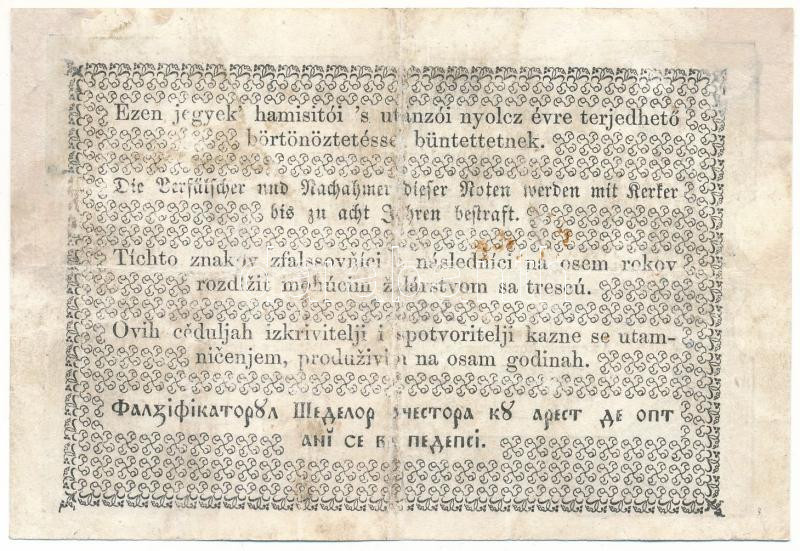 Ezen jegyek' hamisitói 's utánzói nyolcz évre terjedhető
börtönöztetéssel büntettetnek.
Die Verfälscher und Nachahmer dieser Noten werden mit Kerker
bis zu acht Jahren bestraft.
Tíchto znakov zfalssovňíci následníci na osem rokov
rozdížit mohúcím žalárstvom sa tresců.
Ovih cěduljah izkrivitelji i spotvoritelji kazne se utam-
ničenjem, produživim na osam godinah.
Фалзіфікаторул Шеделор ачестора кꙋ арест де опт
анї се ва педепсі.